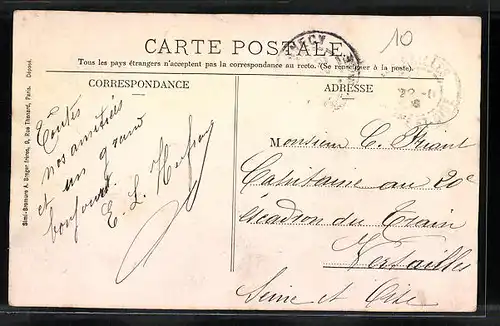 10
CARTE POSTALE
Tous les pays étrangers n'acceptent pas la correspondance au recto. (Se renseigner à la poste).
CORRESPONDANCE
ADRESSE
Toutes
nos amitiés
et un grand
bonjour.
E. L.
Monsieur C. Friant
Capitaine au 20e
Escadron du Train
Versailles
Seine et Oise
Simili-Bromure A. Breger frères, 9, Rue Thénard, Paris. Déposé.